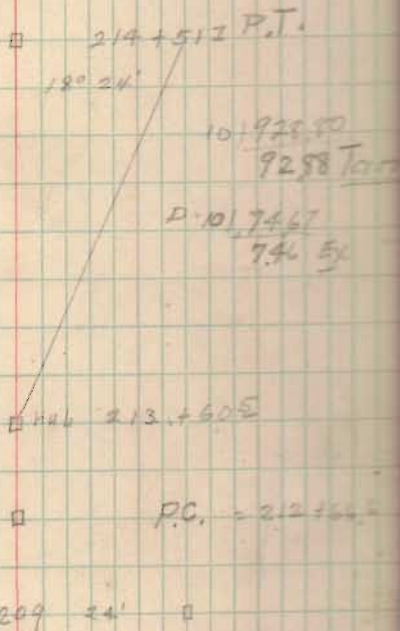 214 + 51 P.T.
18° 24'
10 | 928.80
92 88 Tan
D 10 | 74.67
7.46 Ex
hub 213 + 60
P.C. = 212 +
209 24'